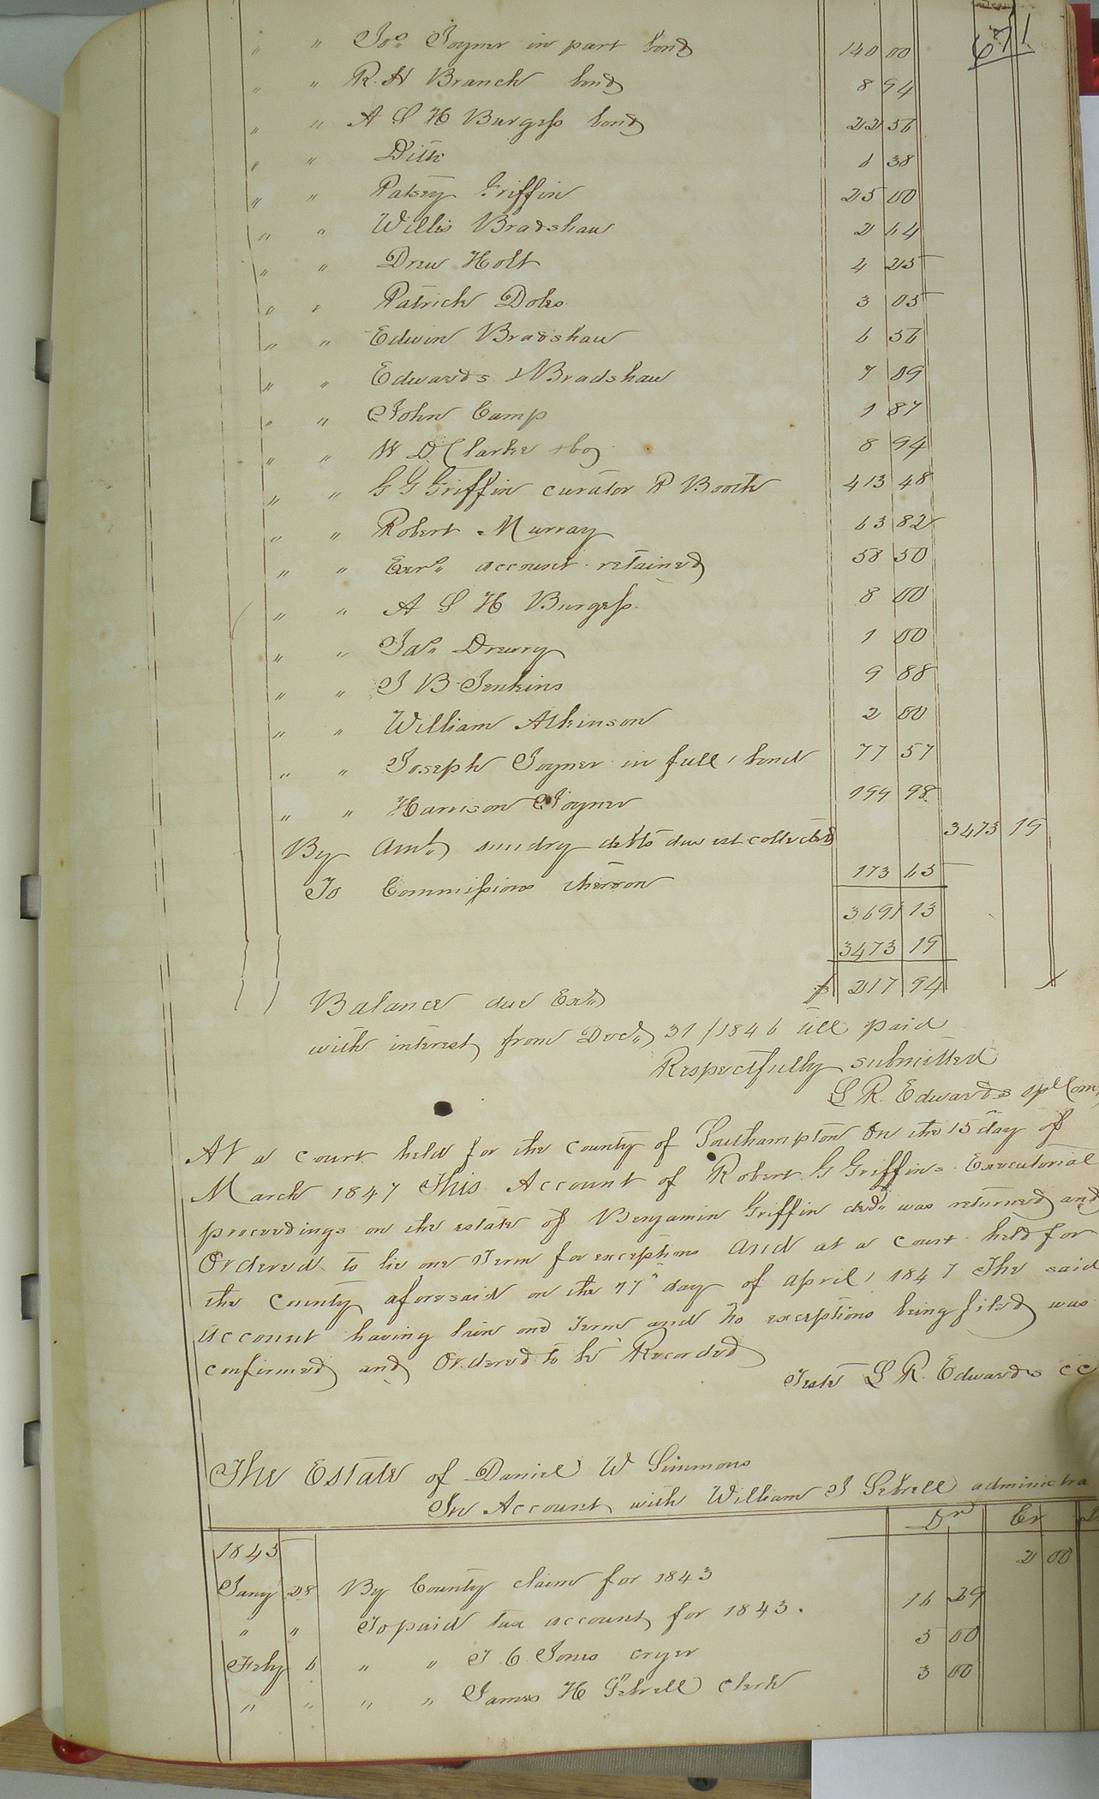 671
" " Jos. Joyner in part bond 140 00
" " R. H Branch bond 8 94
" " A S H Burgess bond 22 56
" " Ditto 6 38
" " Patsey Griffin 25 00
" " Willis Bradshaw 2 64
" " Drew Holt 4 25
" " Patrick Doles 3 05
" " Edwin Bradshaw 6 56
" " Edwards & Bradshaw 7 09
" " John Camp 1 87
" " W D Clarke & Co 8 94
" " G G Griffin curator R Booth 413 48
" " Robert Murray 63 82
" " Exrs. account retained 58 50
" " A S H Burgess 8 00
" " Jas. Drewry 1 00
" " J B Jenkins 9 88
" " William Atkinson 2 00
" " Joseph Joyner in full, bond 77 57
" " Harrison Joyner 194 98
By Amt. sundry debts due est collected 3473 19
To Commissions thereon 173 65
3691 13
3473 19
Balance due Exr. $ 217 94
with interest from Decr. 31/1846 till paid
Respectfully submitted
L R. Edwards spl Com
At a court held for the county of Southampton On the 15 day of
March 1847 This Account of Robert G Griffins Executorial
proceedings on the estate of Benjamin Griffin decd. was returned and
Ordered to lie one Term for exceptions and at a court held for
the County aforesaid on the day of April, 1847 The said
account having lain one Term and no exceptions being filed was
confirmed and Ordered to be Recorded
Teste L R. Edwards CC
The Estate of Daniel W Simmons
In Account with William J Sebrell administra
Dr Cr
1845
Jany 28 By County claim for 1843 2 00
" " To paid tax account for 1843. 16 29
Feby 6 " " J C Jones cryer 5 00
" " " " James H Sebrell Clerk 3 00